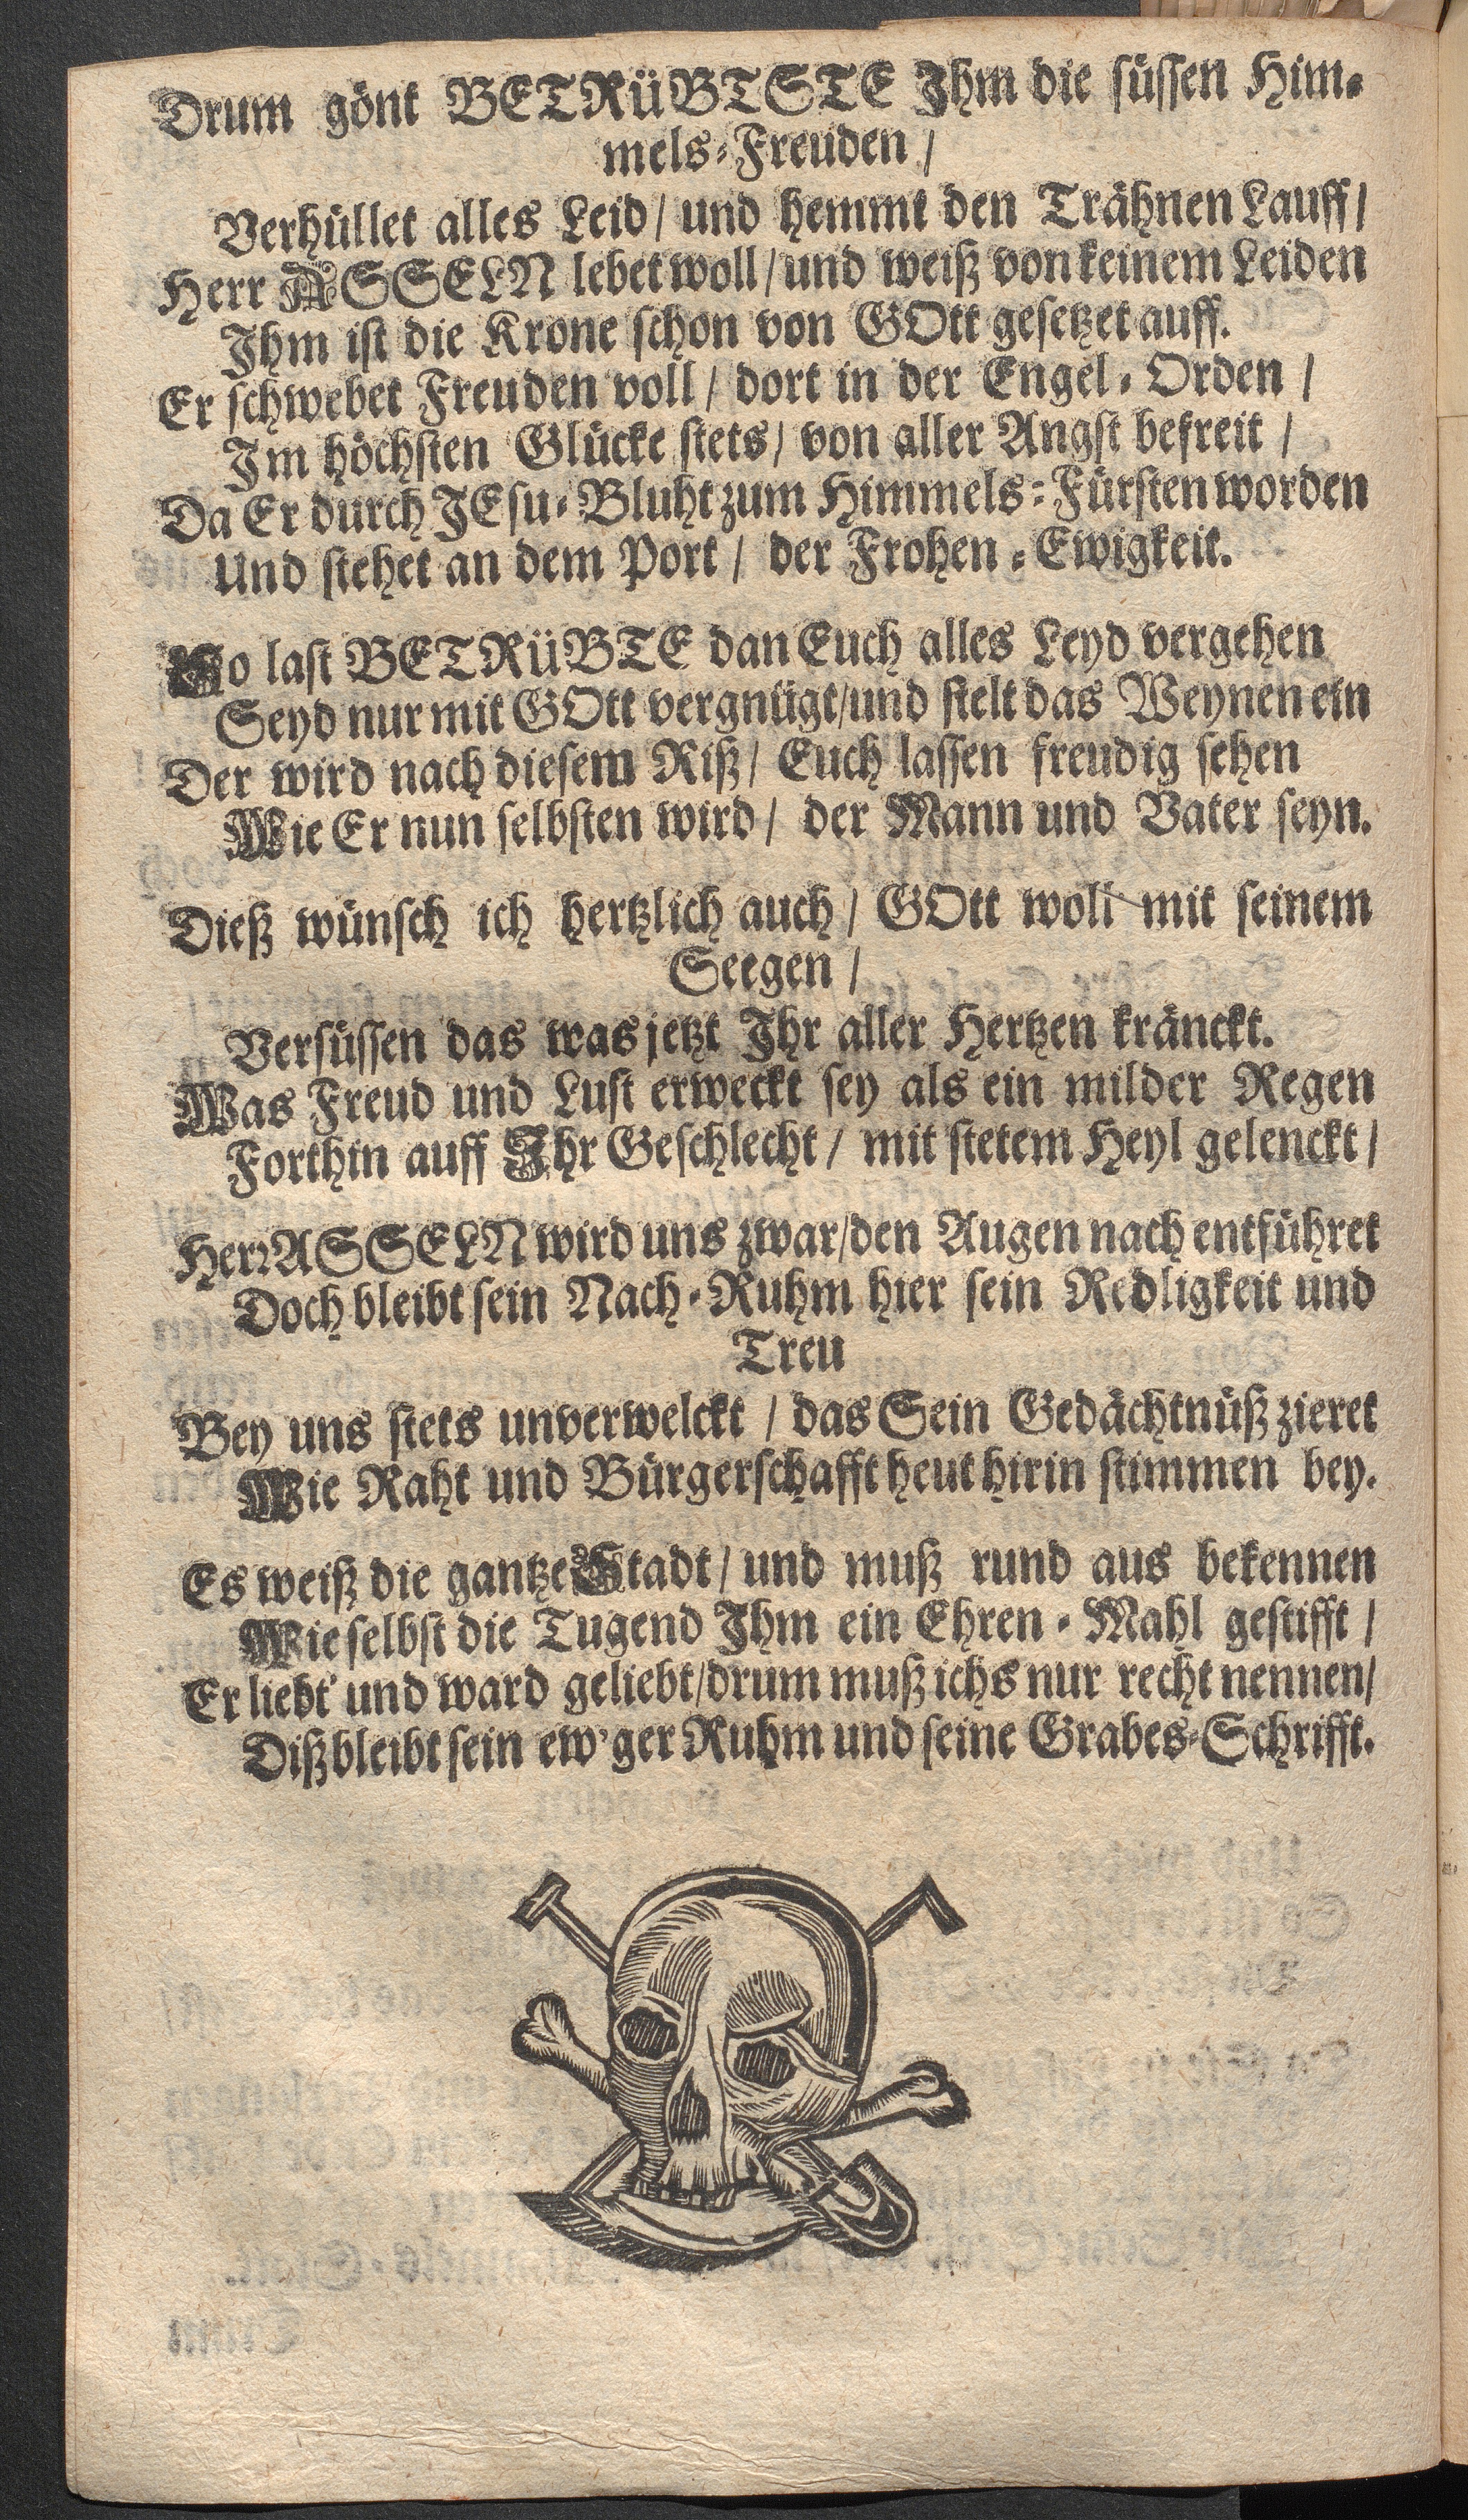 Drum gönt BETRüBTSTE Ihm die süssen Him-
mels-Freuden /
Verhüllet alles Leid / und hemmt den Trähnen Lauff /
Herr ASSELN lebet woll / und weiß von keinem Leiden
Ihm ist die Krone schon von GOtt gesetzet auff.
Er schwebet Freuden voll / dort in der Engel-Orden /
Im höchsten Glücke stets / von aller Angst befreit /
Da Er durch JEsu-Bluht zum Himmels-Fürsten worden
Und stehet an dem Port / der Frohen-Ewigkeit.
So last BETRüBTE dan Euch alles Leyd vergehen
Seyd nur mit GOtt vergnügt / und stelt das Weynen ein
Der wird nach diesem Riß / Euch lassen freudig sehen
Wie Er nun selbsten wird / der Mann und Vater seyn.
Dieß wünsch ich hertzlich auch / GOtt woll mit seinem
Seegen /
Versüssen das was jetzt Ihr aller Hertzen kränckt.
Was Freud und Lust erweckt sey als ein milder Regen
Forthin auff Ihr Geschlecht / mit stetem Heyl gelenckt /
Herr ASSELN wird uns zwar / den Augen nach entführet
Doch bleibt sein Nach-Ruhm hier sein Redligkeit und
Treu
Bey uns stets unverwelckt / das Sein Gedächtnüß zieret
Wie Raht und Bürgerschafft heut hirin stimmen bey.
Es weiß die gantze Stadt / und muß rund aus bekennen
Wie selbst die Tugend Ihm ein Ehren-Mahl gestifft /
Er liebt' und ward geliebt / drum muß ichs nur recht nennen /
Diß bleibt sein ew'ger Ruhm und seine Grabes-Schrifft.